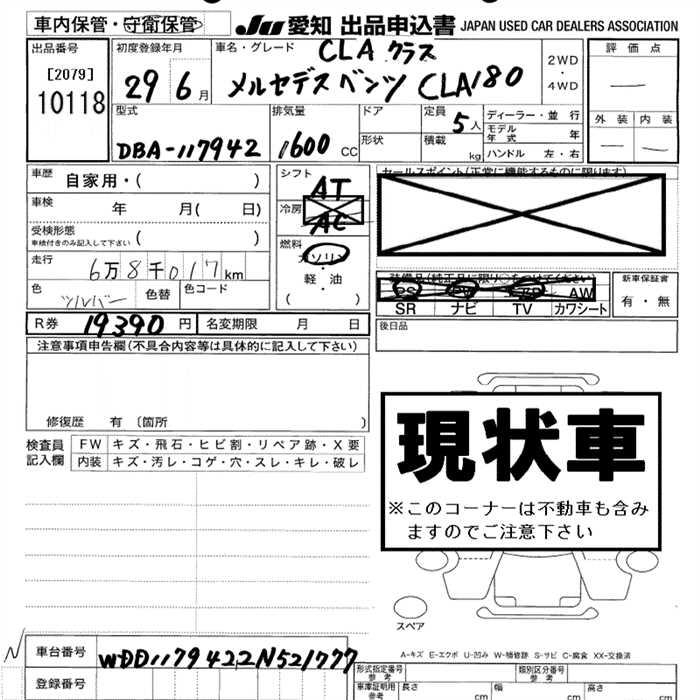 車内保管・守衛保管 JU 愛知 出品申込書 JAPAN USED CAR DEALERS ASSOCIATION
出品番号 初度登録年月 車名・グレード CLA クラス 2WD・4WD 評価点
[2079]
10118 29 6月 メルセデスベンツ CLA180 —
外装 内装
— —
型式 DBA-117942 排気量 1600 CC ドア 形状 定員 5人 積載 kg
ディーラー・並行
モデル年式 年
ハンドル 左・右
車歴 自家用・( ) シフト AT セールスポイント(正常に機能するものに限ります)
車検 年 月( 日) 冷房 AC
受検形態 車検付きのみ記入して下さい ( ) 燃料 ガソリン
走行 6万8千017km 軽・油
( )
色 シルバー 色替 色コード
装備品(純正品に限り○をつけてください) 新車保証書
PS PW AW 有・無
SR ナビ TV カワシート
R券 19390円 名変期限 月 日 後日品
注意事項申告欄(不具合内容等は具体的に記入して下さい)
修復歴 有〔箇所 〕
検査員記入欄 FW キズ・飛石・ヒビ割・リペア跡・X要
内装 キズ・汚レ・コゲ・穴・スレ・キレ・破レ
現状車
※このコーナーは不動車も含み
ますのでご注意下さい
スペア
A-キズ E-エクボ U-凹み W-補修跡 S-サビ C-腐食 XX-交換済
N 車台番号 WDD1179422N521777
登録番号
形式指定番号 参考 類別区分番号 参考
車庫証明用 参考 長さ cm 幅 cm 高さ cm